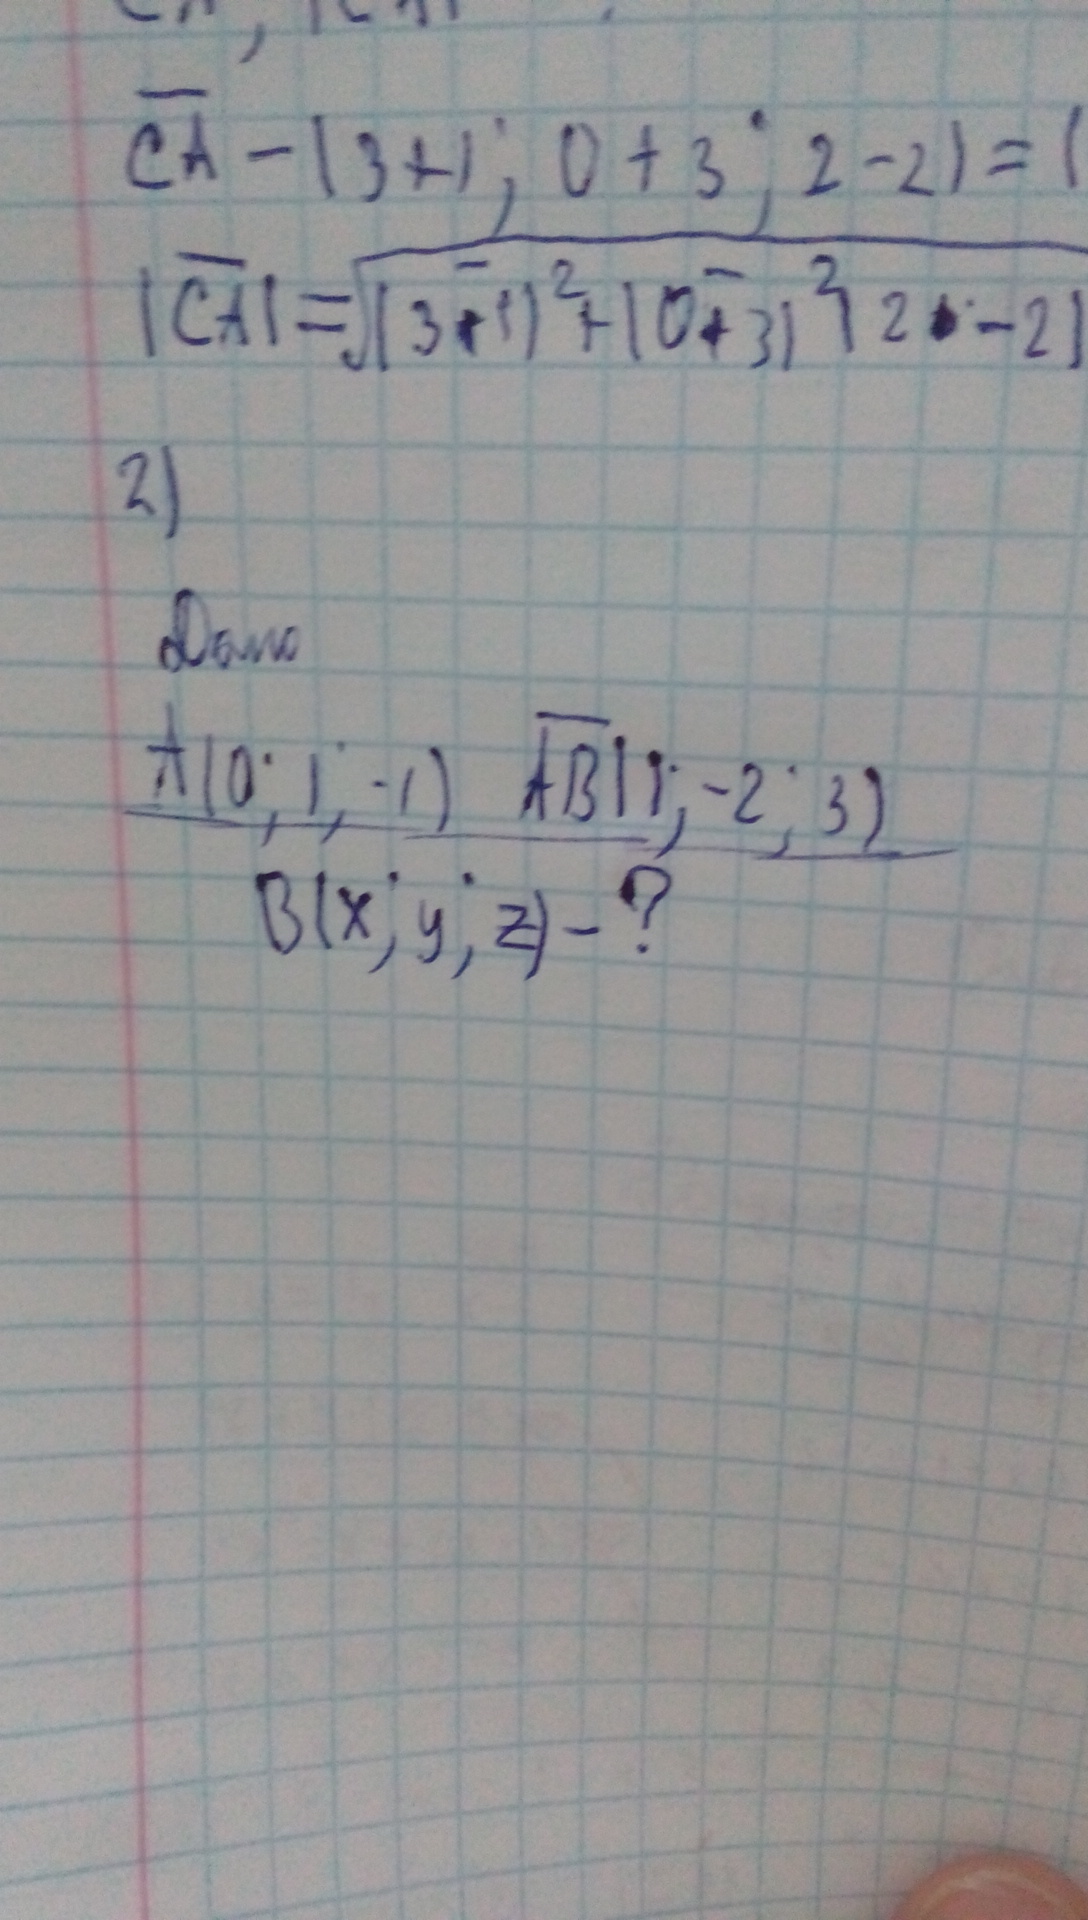 CA - (3+1; 0+3; 2-2) = (
|CA| = √(3+1)²+(0+3)²(2-2)
2)
Дано
A(0; 1; -1) AB(1; -2; 3)
B(x; y; z) - ?